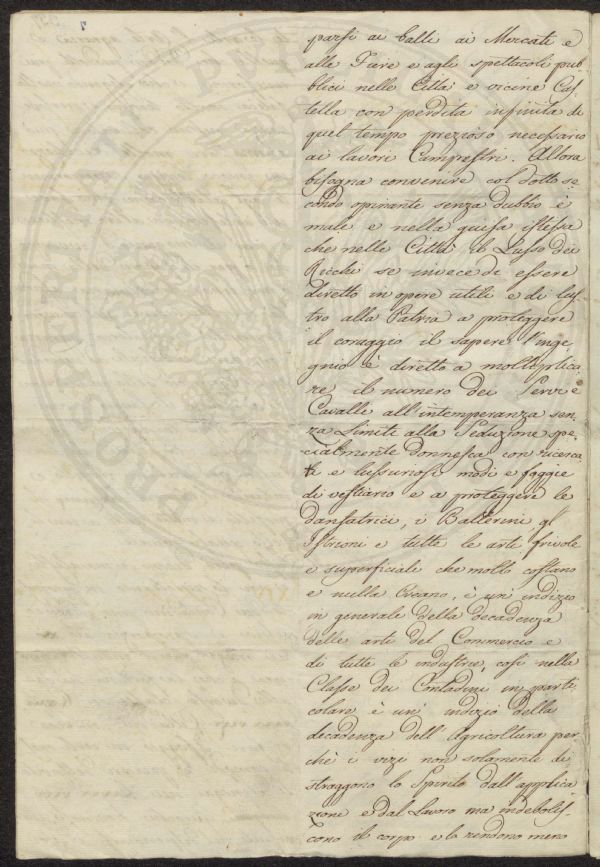 7
parsi ai balli ai Mercati e
alle Fiere e agli spettacoli pub
blici nelle Città e vicine Cas
tella con perdita infinita di
quel tempo prezioso necessario
ai lavori Campestri. Allora
bisogna convenire col dotto se
condo opinante senza dubbio è
male e nella guisa istessa
che nelle Città il Lusso dei
Ricchi se invece di essere
diretto in opere utili e di lus
tro alla Patria a proteggere
il coraggio il sapere l'inge
gnio è diretto a moltiplica
re il numero dei Servi e
Cavalli all'intemperanza sen
za Limiti alla Seduzione spe
cialmente donnesca con ricerca
ti e lussuriosi modi e foggie
di vestiario e a proteggere le
dansatrici, i Ballerini gl'
Istrioni e tutte le arti frivole
e superficiali che molto costano
e nulla creano, è un'indizio
in generale della decadenza
delle arti del Commercio e
di tutte le industrie, così nella
Classe dei Contadini in parti
colare è un' indizio della
decadenza dell'Agricoltura per
chè i vizi non solamente di
straggono lo Spirito dall'applica
zione e dal Lavoro ma indebolis
cono il corpo e lo rendono meno
PROSPERITATI PVB